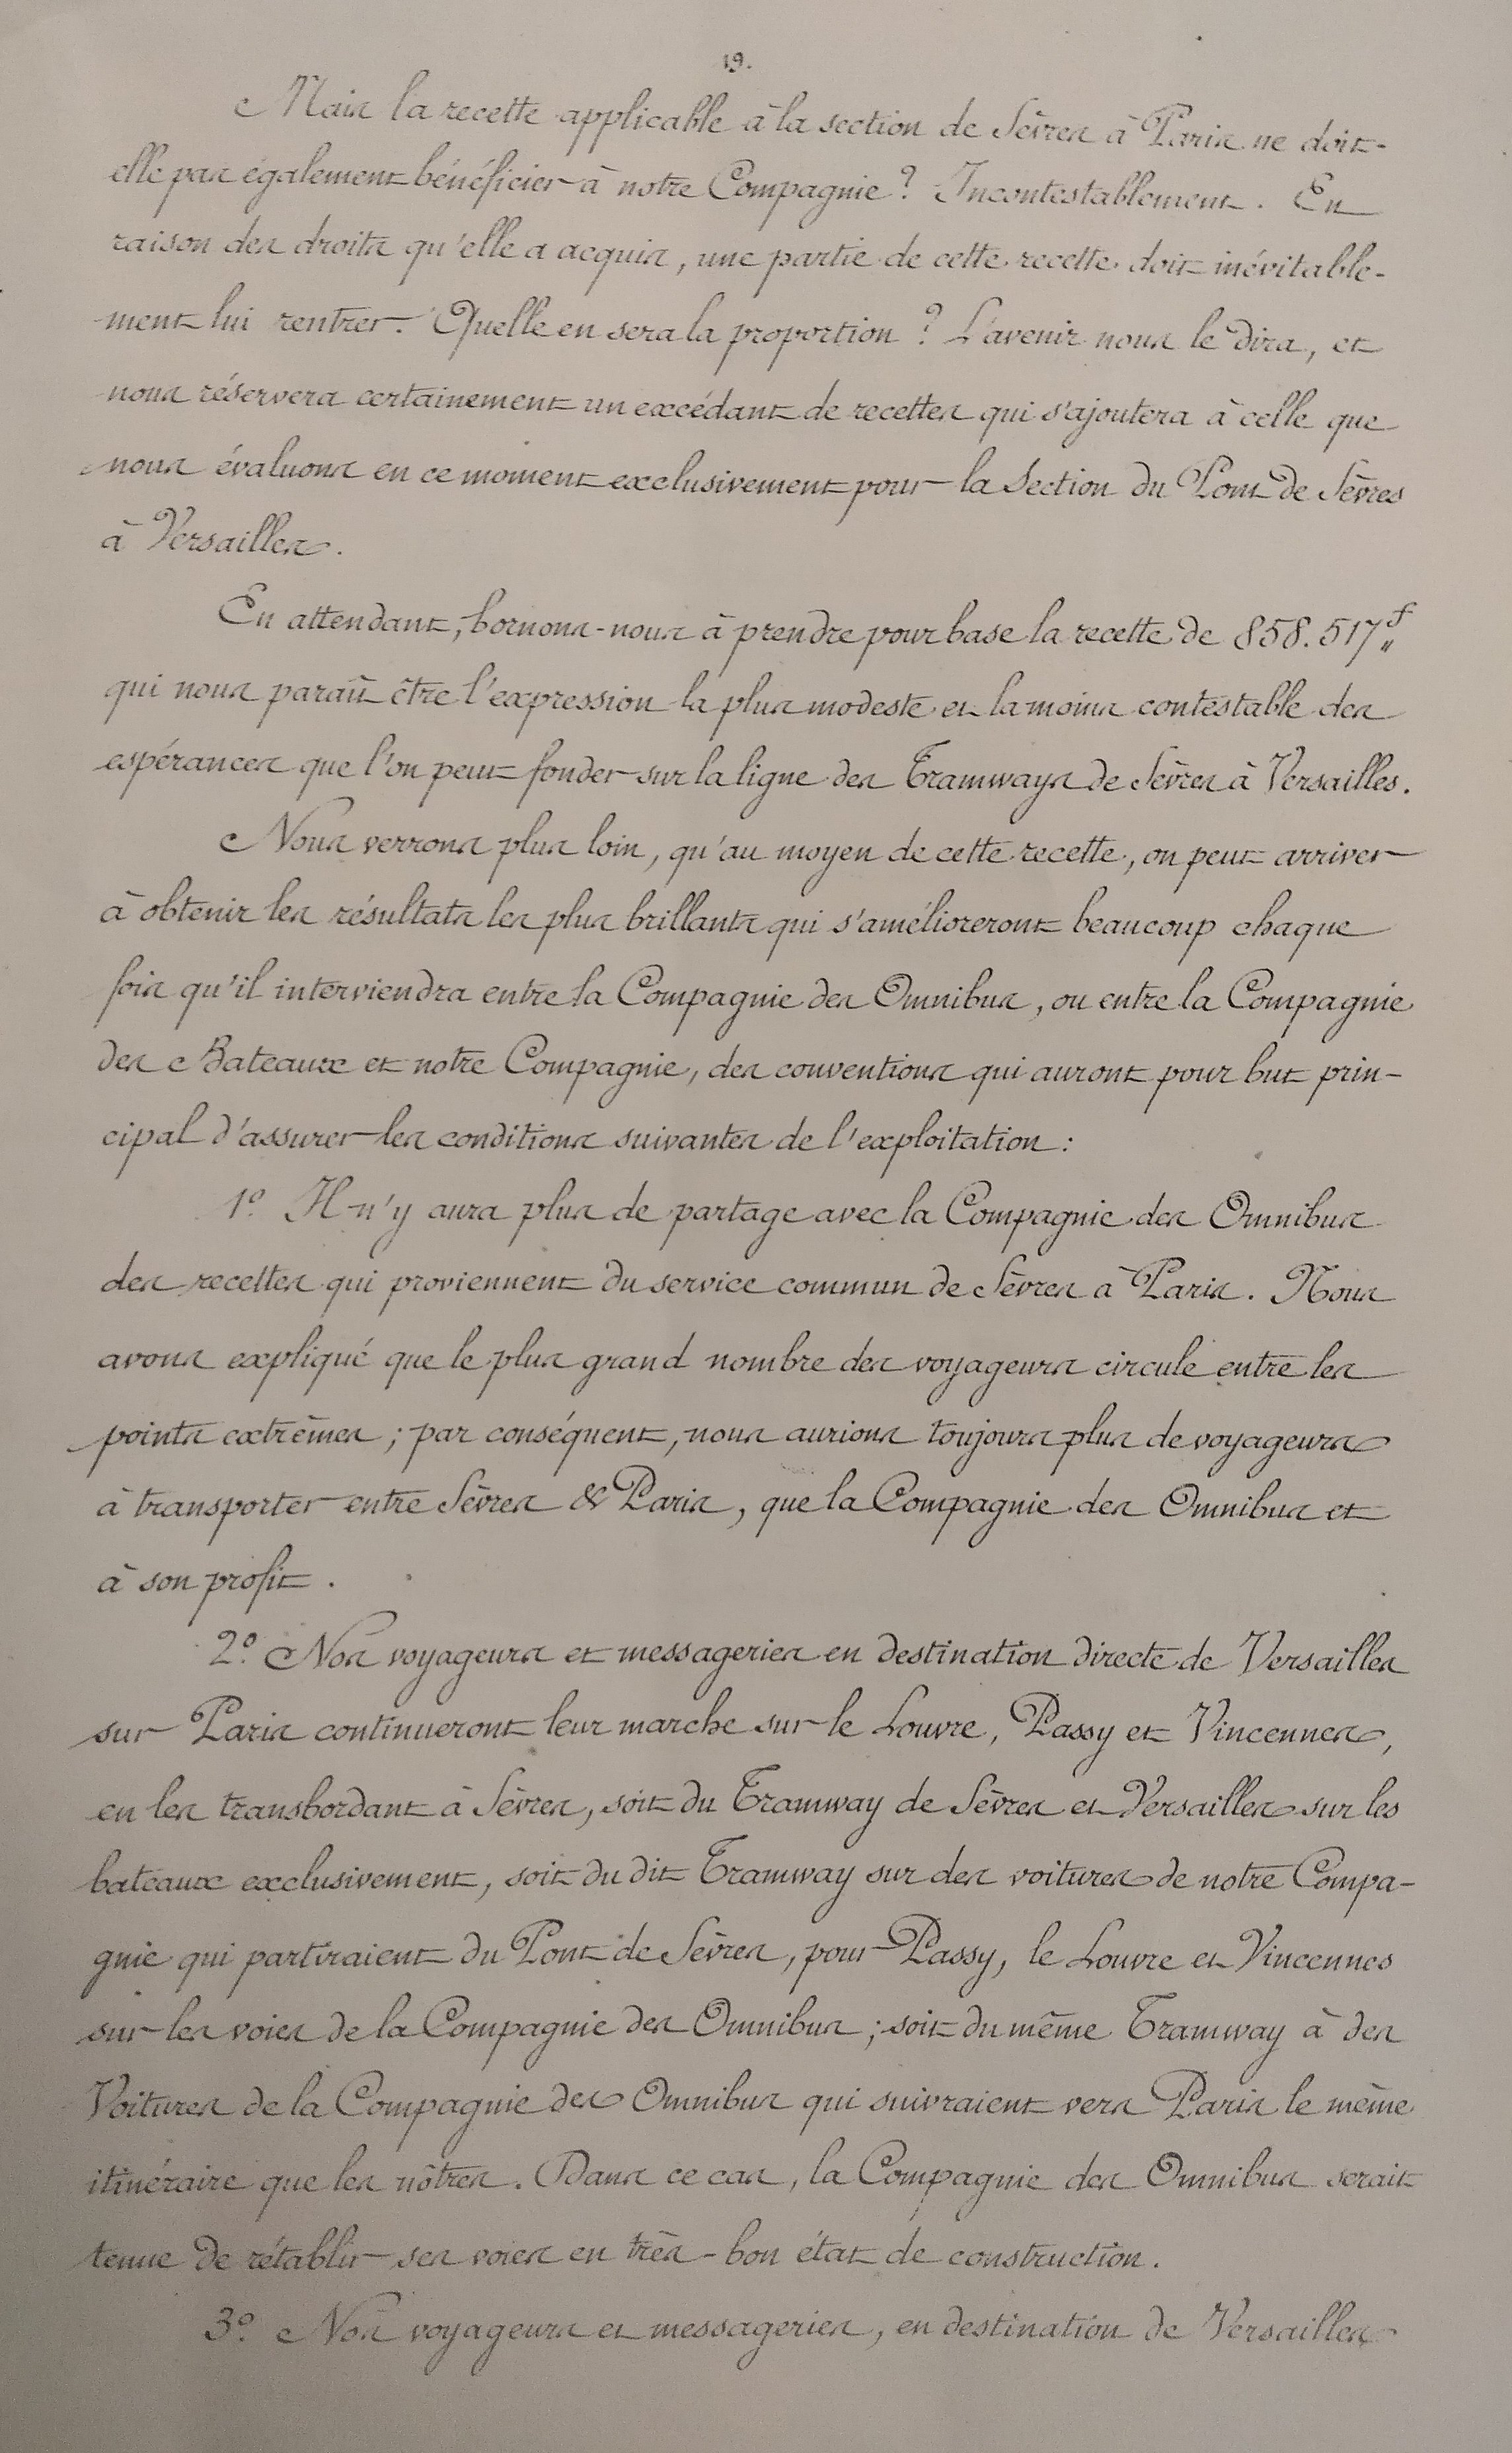 19.
Mais la recette applicable à la section de Sèvres à Paris ne doit-
elle pas également bénéficier à notre Compagnie ? Incontestablement. En
raison des droits qu'elle a acquis, une partie de cette recette doit inévitable-
ment lui rentrer. Quelle en sera la proportion ? L'avenir nous le dira, et
nous réservera certainement un excédant de recettes qui s'ajoutera à celle que
nous évaluons en ce moment exclusivement pour la Section du Pont de Sèvres
à Versailles.
En attendant, bornons-nous à prendre pour base la recette de 858.517 f "
qui nous paraît être l'expression la plus modeste et la moins contestable des
espérances que l'on peut fonder sur la ligne des Tramways de Sèvres à Versailles.
Nous verrons plus loin, qu'au moyen de cette recette, on peut arriver
à obtenir les résultats les plus brillants qui s'amélioreront beaucoup chaque
fois qu'il interviendra entre la Compagnie des Omnibus, ou entre la Compagnie
des Bateaux et notre Compagnie, des conventions qui auront pour but prin-
cipal d'assurer les conditions suivantes de l'exploitation :
1° Il n'y aura plus de partage avec la Compagnie des Omnibus
des recettes qui proviennent du service commun de Sèvres à Paris. Nous
avons expliqué que le plus grand nombre des voyageurs circule entre les
points extrêmes ; par conséquent, nous aurions toujours plus de voyageurs
à transporter entre Sèvres & Paris, que la Compagnie des Omnibus et
à son profit.
2° Nos voyageurs et messageries en destination directe de Versailles
sur Paris continueront leur marche sur le Louvre, Passy et Vincennes,
en les transbordant à Sèvres, soit du Tramway de Sèvres et Versailles sur les
bateaux exclusivement, soit du dit Tramway sur des voitures de notre Compa-
gnie qui partiraient du Pont de Sèvres, pour Passy, le Louvre et Vincennes
sur les voies de la Compagnie des Omnibus ; soit du même Tramway à des
Voitures de la Compagnie des Omnibus qui suivraient vers Paris le même
itinéraire que les nôtres. Dans ce cas, la Compagnie des Omnibus serait
tenue de rétablir ses voies en très-bon état de construction.
3° Nos voyageurs et messageries, en destination de Versailles